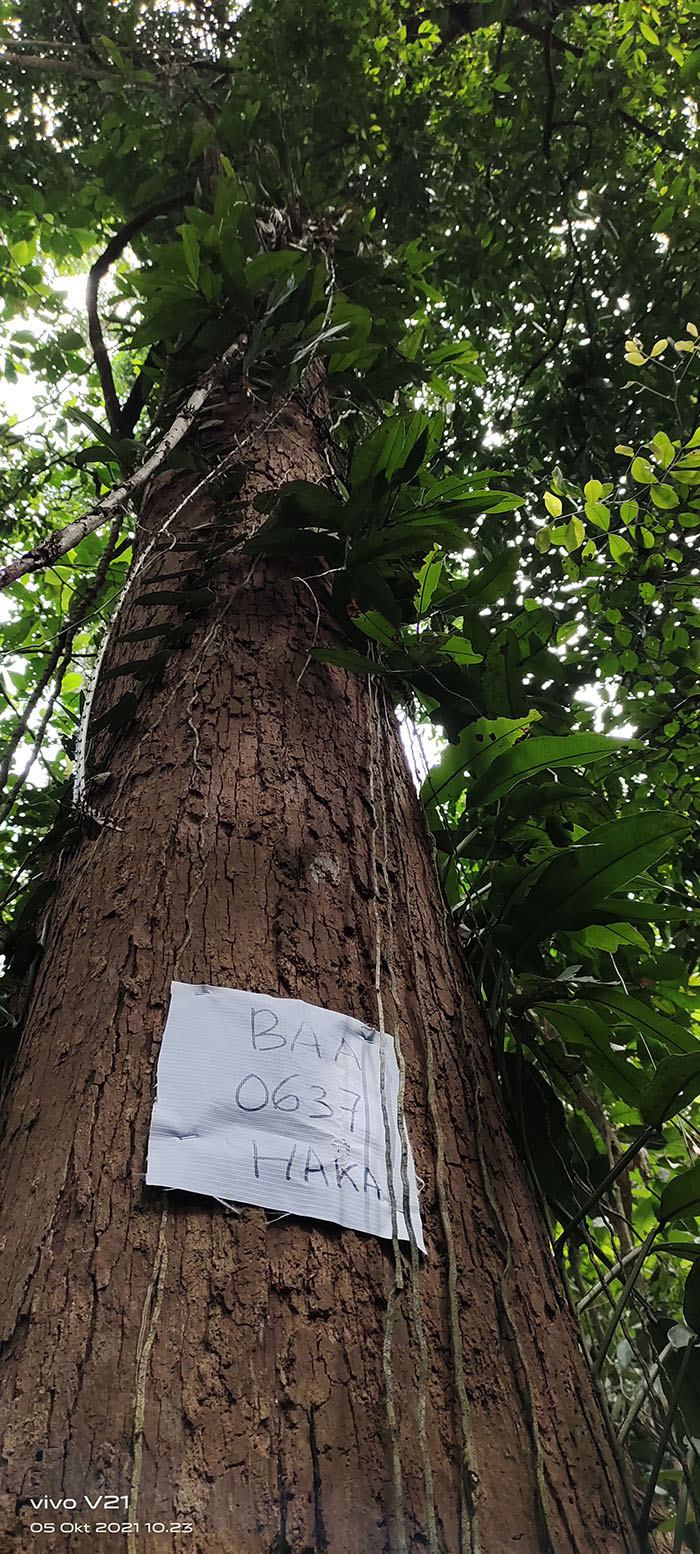 BAA
0637
HAKA
vivo V21
05 Okt 2021 10.23